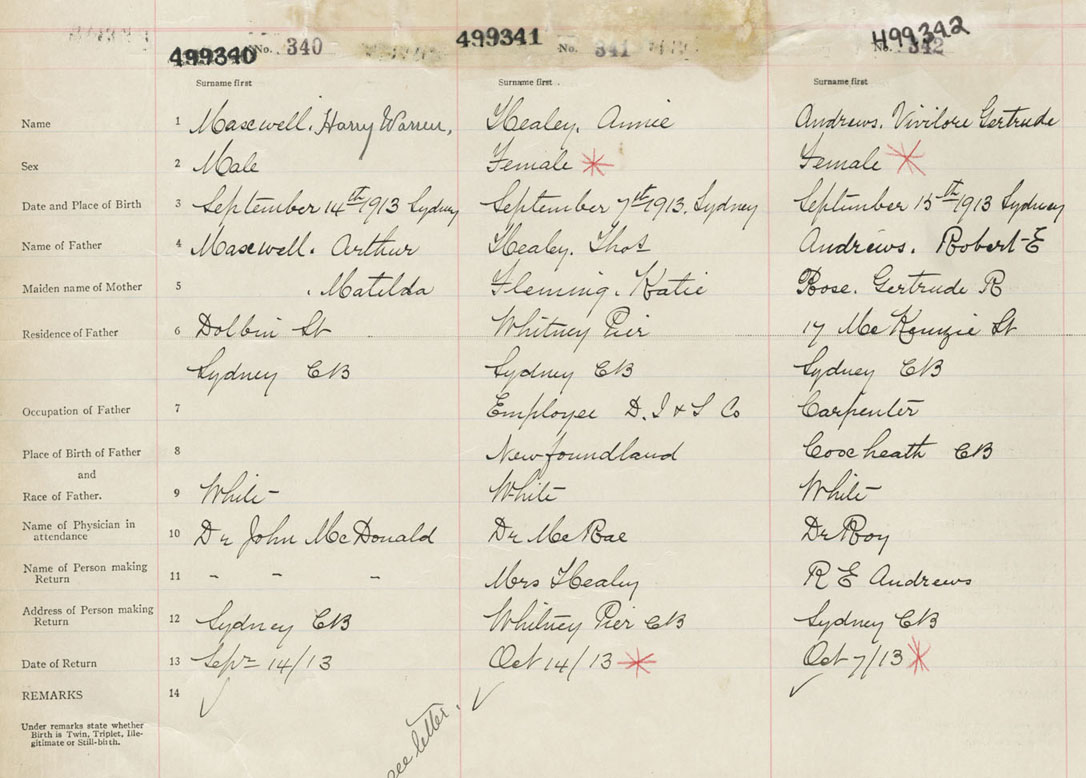 499340 No. 340 499341 No. 341 499342 No. 342
Surname first Surname first Surname first
Name 1 Maxwell. Harry Warren, Healey. Annie Andrews. Vivilore Gertrude
Sex 2 Male Female Female
Date and Place of Birth 3 September 14th 1913 Sydney September 7th 1913. Sydney September 15th 1913 Sydney
Name of Father 4 Maxwell. Arthur Healey. Thos Andrews. Robert E
Maiden name of Mother 5 . Matilda Fleming. Katie Rose. Gertrude R
Residence of Father 6 Dolbin St Whitney Pier 17 McKenzie St
Sydney CB Sydney CB Sydney CB
Occupation of Father 7 Employee D. I & S Co Carpenter
Place of Birth of Father 8 Newfoundland Coxheath CB
and
Race of Father. 9 White White White
Name of Physician in
attendance 10 Dr John McDonald Dr McRae Dr Roy
Name of Person making
Return 11 - - - Mrs Healey R E Andrews
Address of Person making
Return 12 Sydney CB Whitney Pier CB Sydney CB
Date of Return 13 Sept 14/13 Oct 14/13 Oct 7/13
REMARKS 14
Under remarks state whether
Birth is Twin, Triplet, Ille-
gitimate or Still-birth.
see letter.